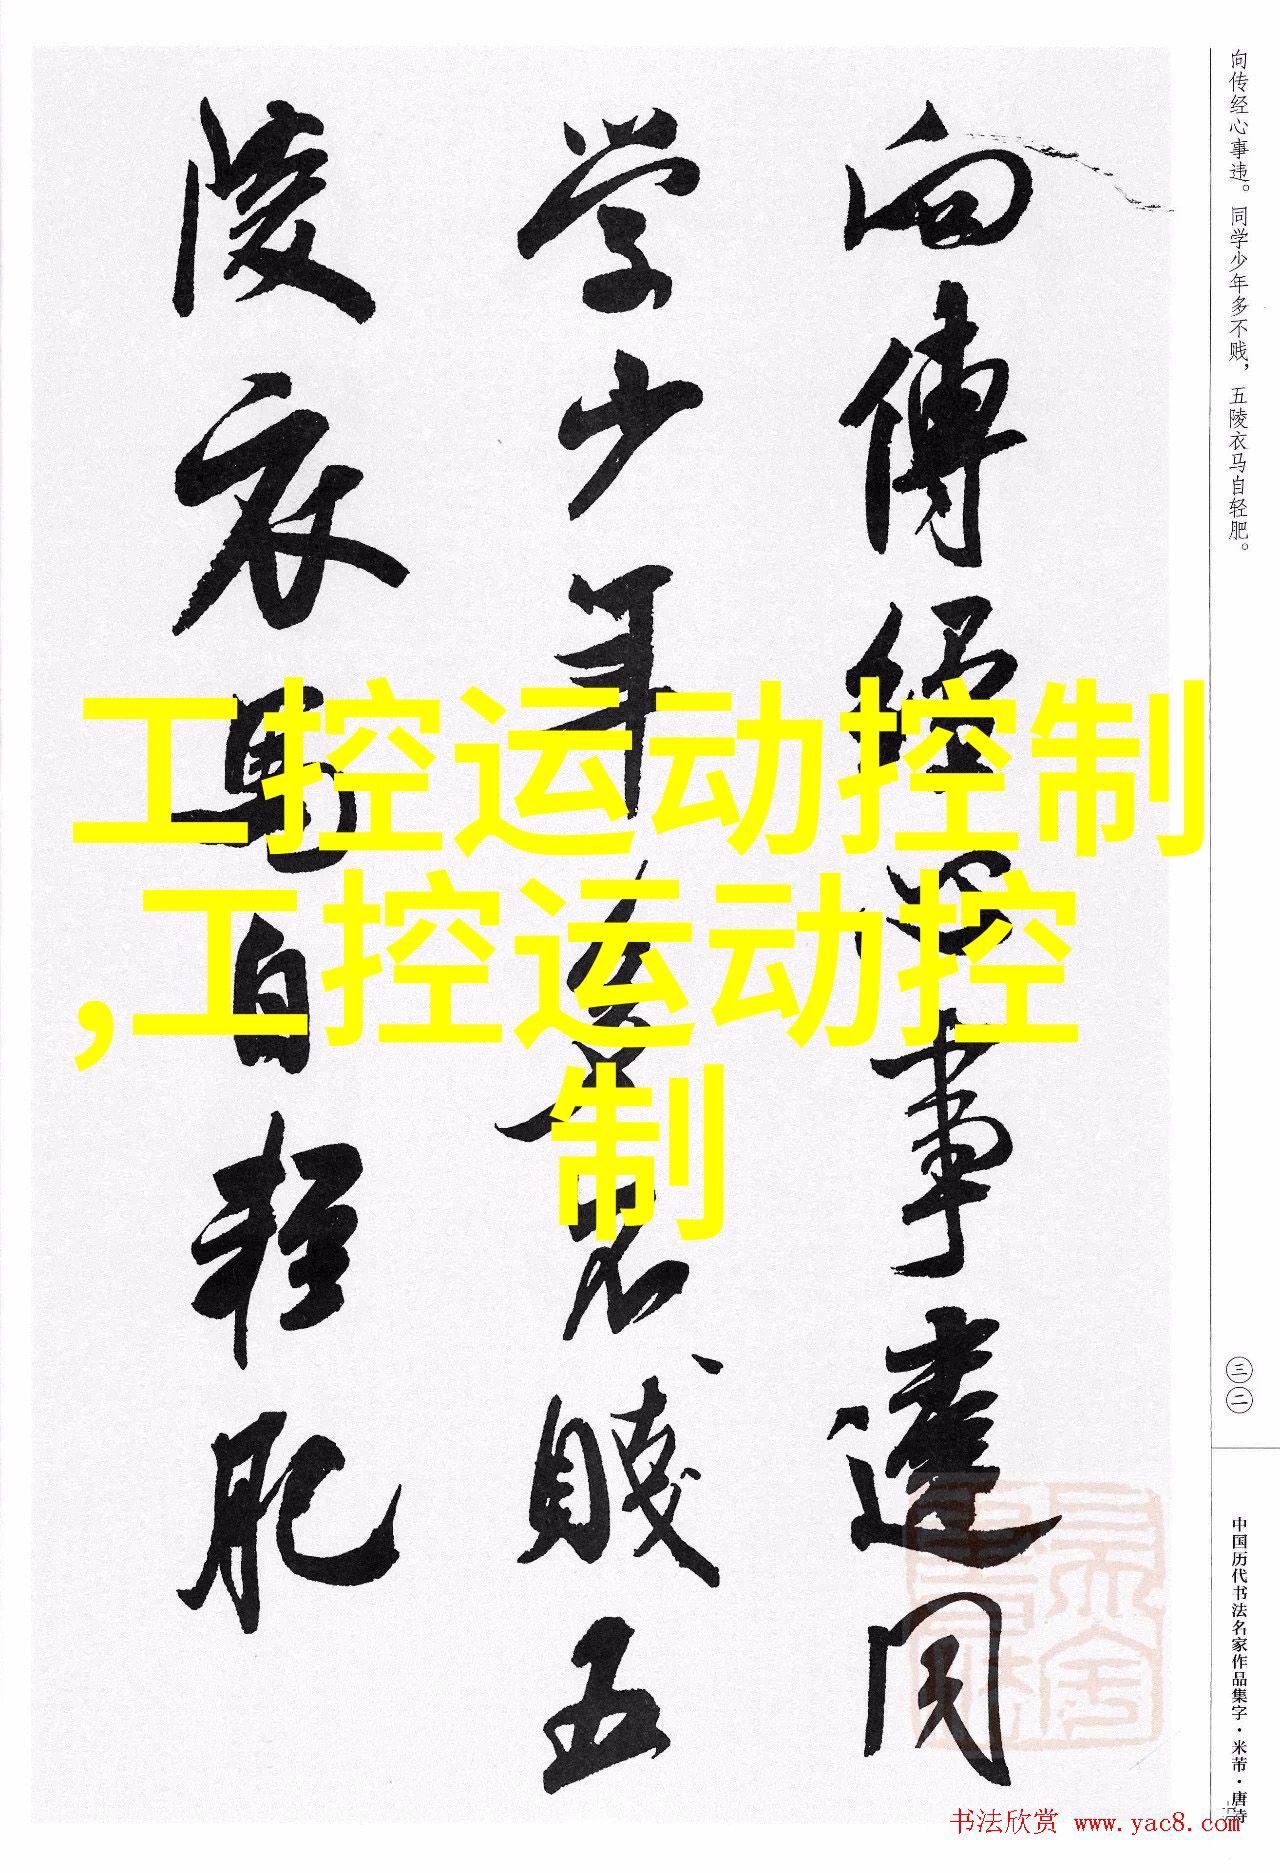 向传经心事违。同学少年多不贱，五陵衣马自轻肥。
向傳經心事違同
学少年多不賤五
陵衣馬自輕肥
工控运动控制
,工控运动控
制
三二
中国历代书法名家作品集字·米芾·唐诗
书法欣赏 www.yac8.com